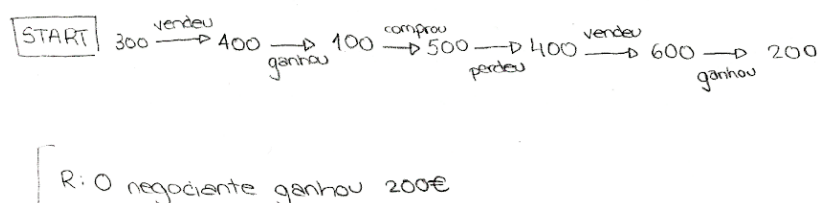 START 300 vendeu 400 ganhou 100 comprou 500 perdeu 400 vendeu 600 ganhou 200
R: O negociante ganhou 200€